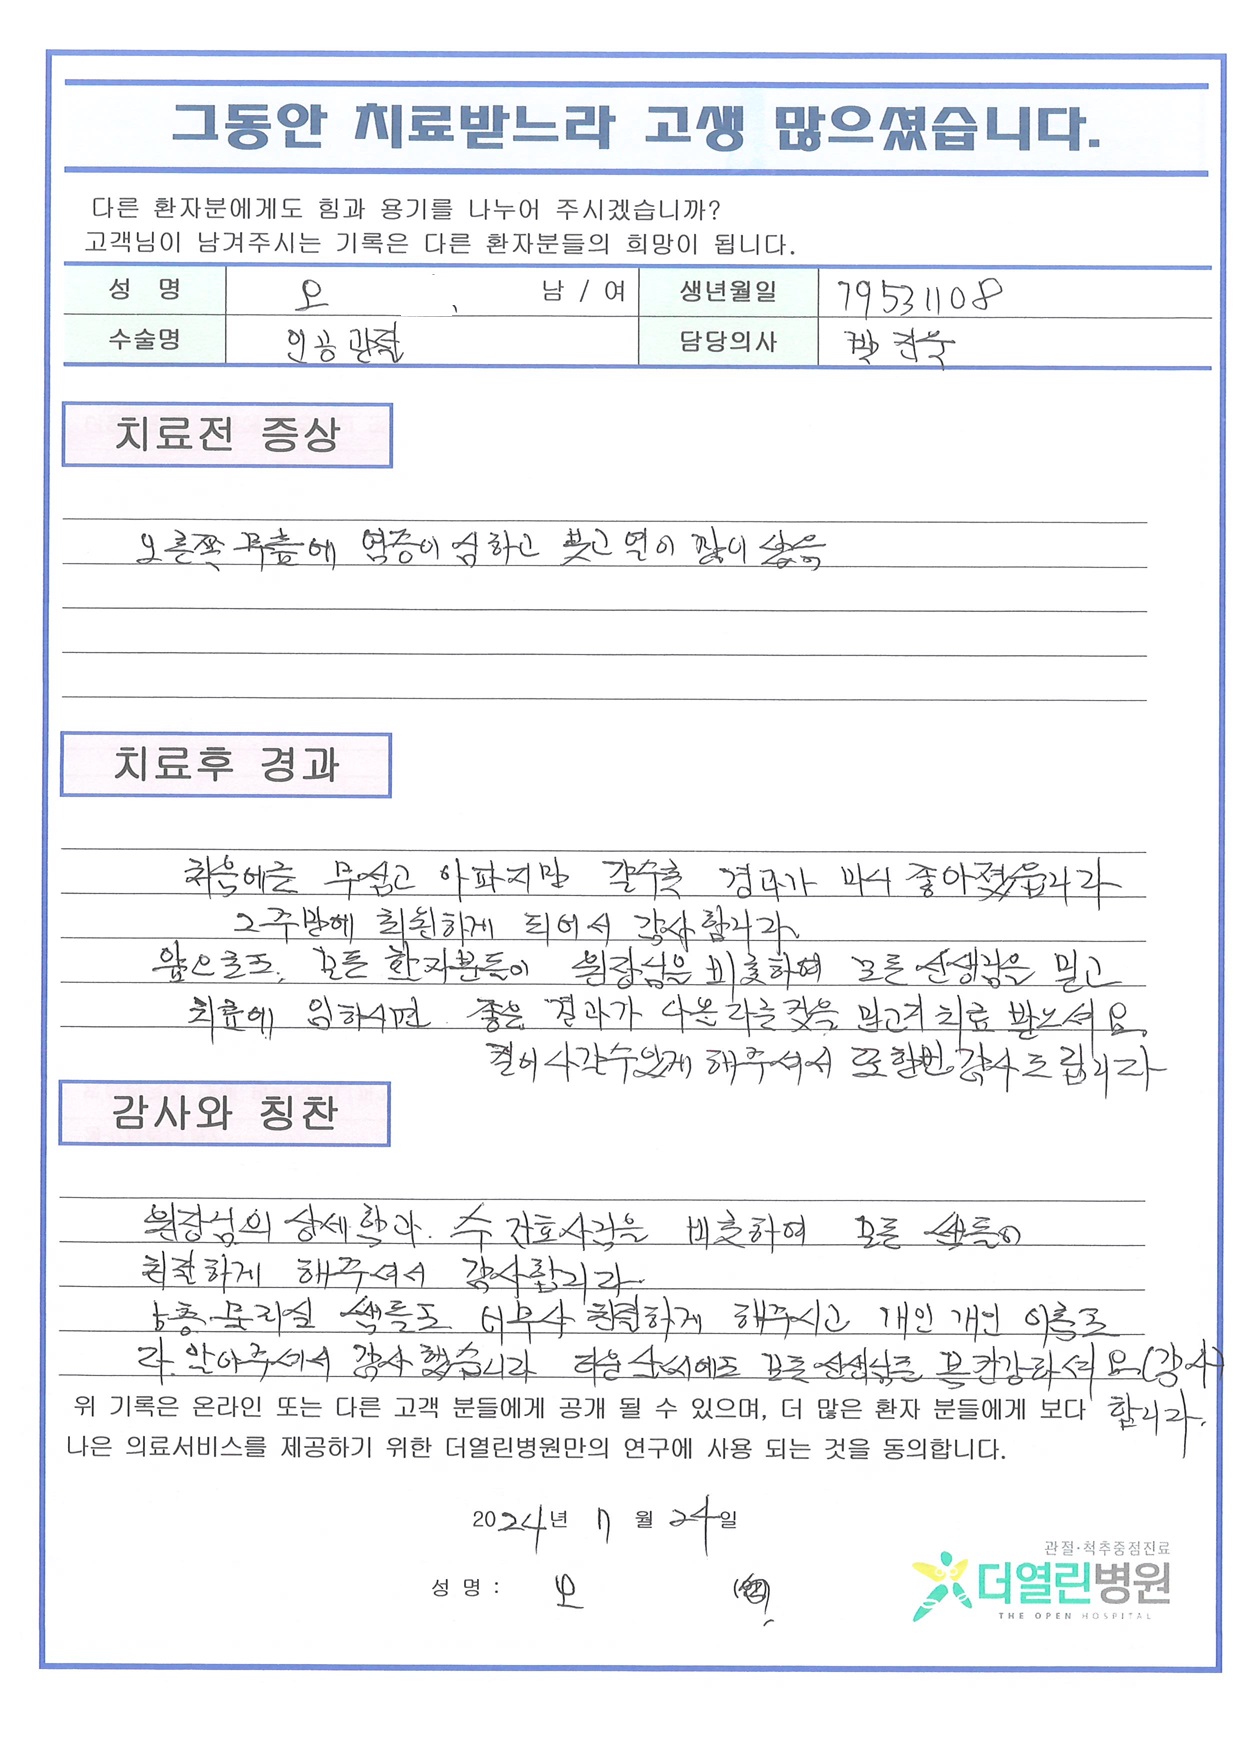 그동안 치료받느라 고생 많으셨습니다.
다른 환자분에게도 힘과 용기를 나누어 주시겠습니까?
고객님이 남겨주시는 기록은 다른 환자분들의 희망이 됩니다.
성 명 오 남 / 여 생년월일 19531108
수술명 인공관절 담당의사
치료전 증상
오른쪽 무릎에 염증이 심하고 붓고 열이 많이 났음
치료후 경과
처음에는 무섭고 아파지만 갈수록 경과가 마니 좋아졌읍니다
2주만에 퇴원하게 되어서 감사합니다.
앞으로도. 모든 환자분들이 원장님을 비롯하여 모든 선생님을 믿고
치료에 임하시면 좋은 결과가 나온다는것을 믿고 치료 받느셔요.
걸어 사각수있게 해주셔서 또 한번 감사드립니다
감사와 칭찬
원장님의 상세함과 수 간호사님을 비롯하여 모든 쌤들이
친절하게 해주셔서 감사합니다.
물리실 쌤들도 너무나 친절하게 해주시고 개인 개인 이름도
다 알아주셔서 감사했습니다 모든 선생님들 건강하셔요 (감사
합니다.
위 기록은 온라인 또는 다른 고객 분들에게 공개 될 수 있으며, 더 많은 환자 분들에게 보다
나은 의료서비스를 제공하기 위한 더열린병원만의 연구에 사용 되는 것을 동의합니다.
2024년 7 월 24일
성 명 : 오 (인)
관절·척추중점진료
더열린병원
THE OPEN HOSPITAL